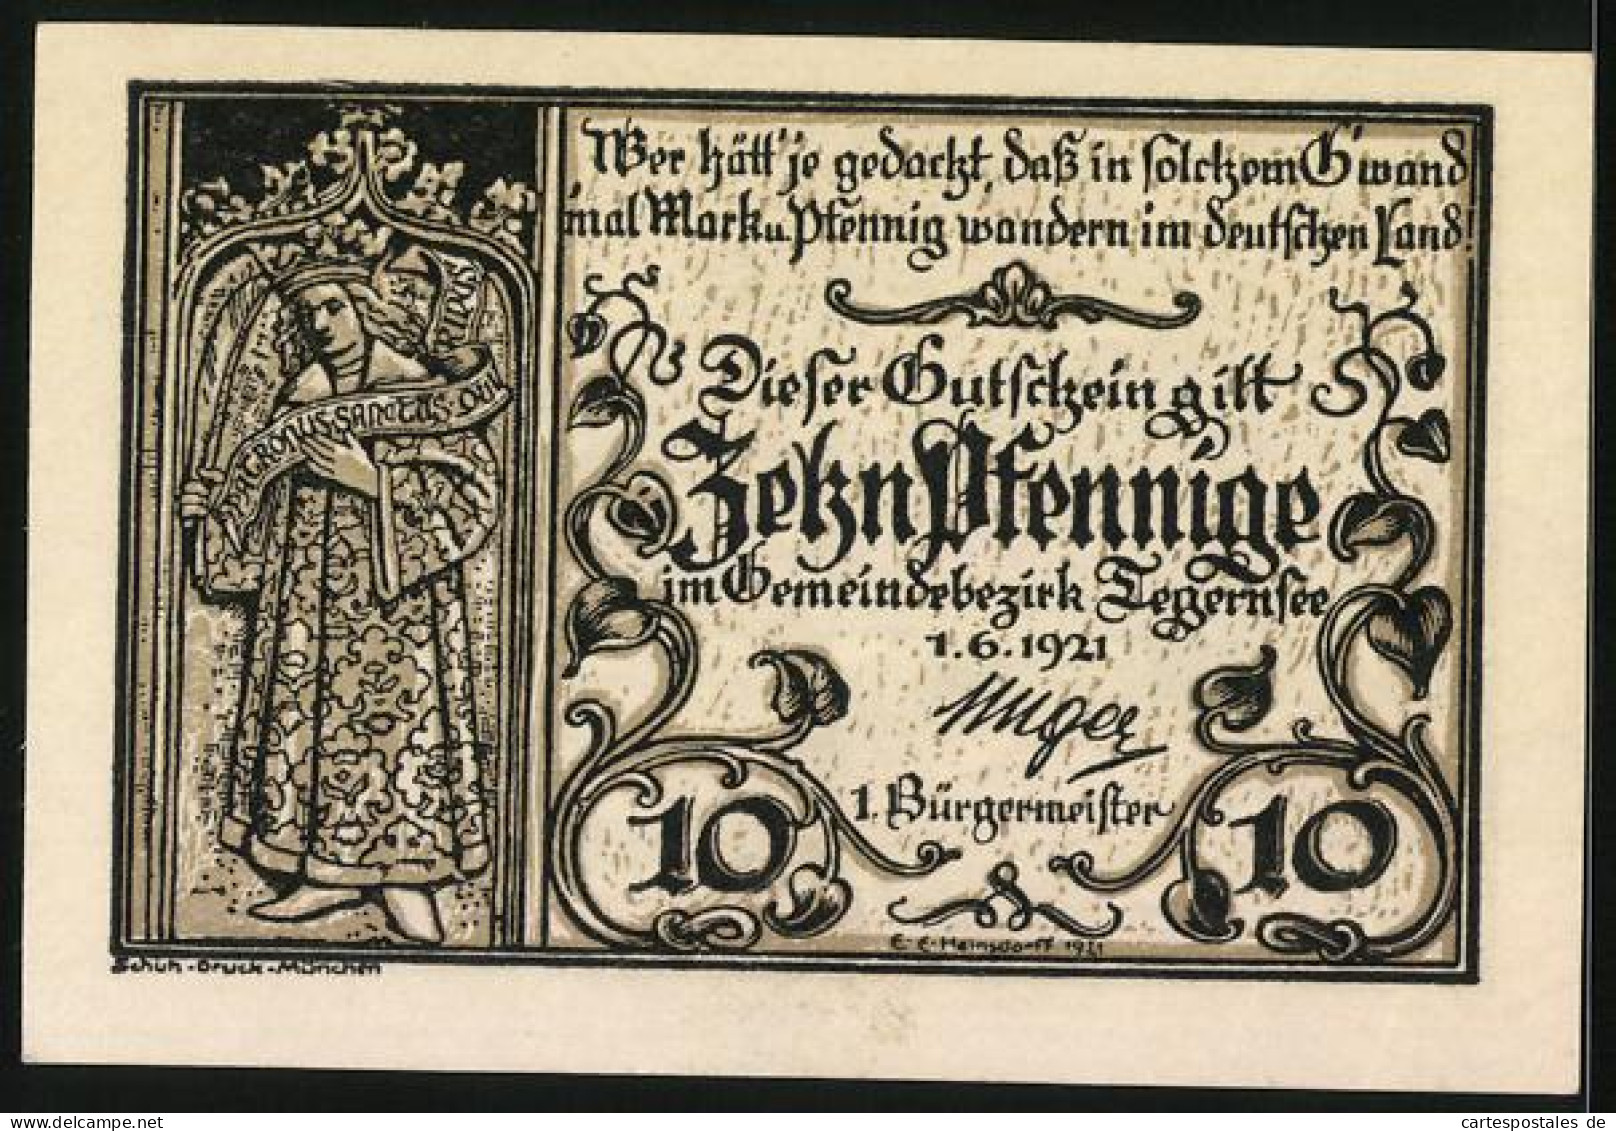 Wer hätt' je gedacht, daß in solchem G'wand
'mal Mark u. Pfennig wandern im deutschen Land!
PATRONUS SANCTUS QUI
RINUS
Dieser Gutschein gilt
Zehn Pfennige
im Gemeindebezirk Tegernsee
1.6.1921
1. Bürgermeister
10
10
E. E. Heinsdorff 1921
Schuh-Druck-München
cartespostales de